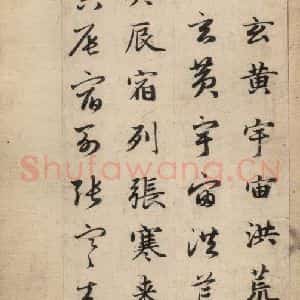 玄黄宇宙洪荒
玄黄宇宙洪荒
辰宿列張寒来
辰宿列張寒来
Shufawang.CN